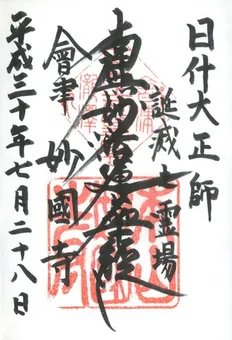 日什大正師
誕滅之霊場
南無妙法蓮華経
會津 妙國寺
平成三十年七月二十八日